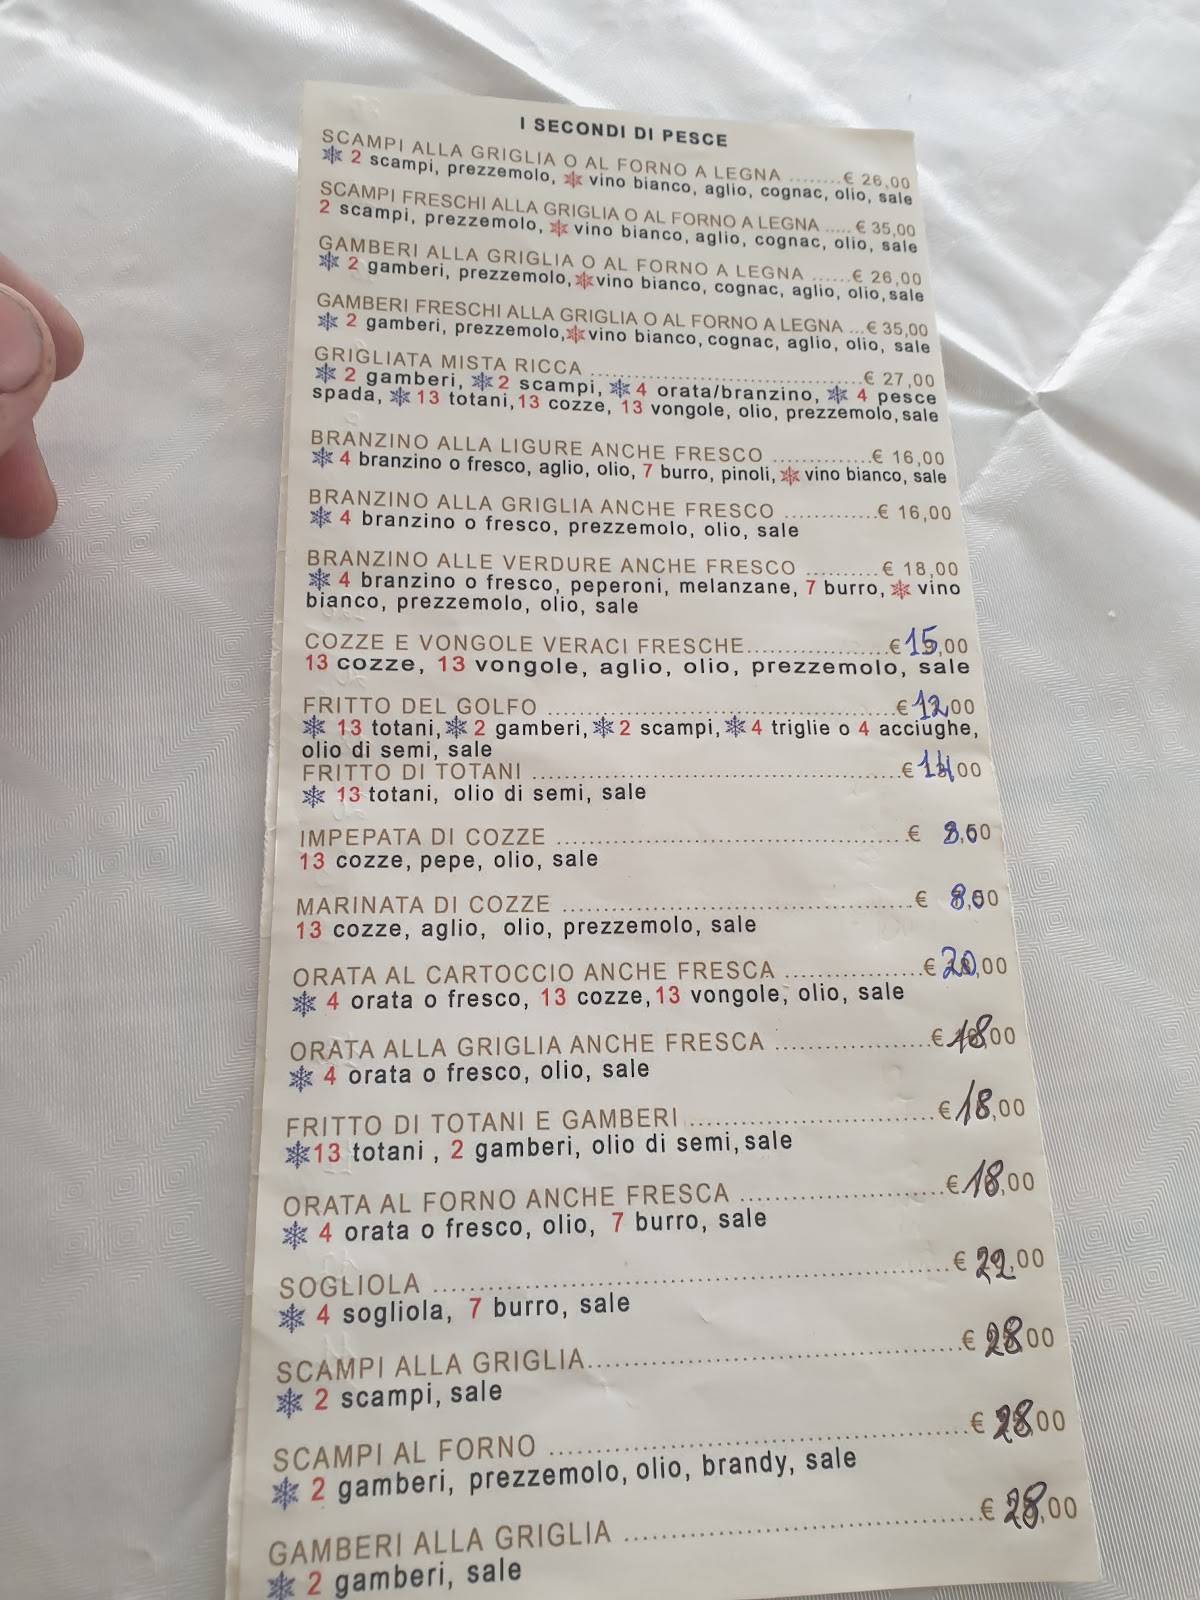 I SECONDI DI PESCE
SCAMPI ALLA GRIGLIA O AL FORNO A LEGNA ........€ 26,00
2 scampi, prezzemolo, vino bianco, aglio, cognac, olio, sale
SCAMPI FRESCHI ALLA GRIGLIA O AL FORNO A LEGNA ..... € 35,00
2 scampi, prezzemolo, vino bianco, aglio, cognac, olio, sale
GAMBERI ALLA GRIGLIA O AL FORNO A LEGNA ......€ 26,00
2 gamberi, prezzemolo, vino bianco, cognac, aglio, olio, sale
GAMBERI FRESCHI ALLA GRIGLIA O AL FORNO A LEGNA ...€ 35,00
2 gamberi, prezzemolo, vino bianco, cognac, aglio, olio, sale
GRIGLIATA MISTA RICCA ........................................€ 27,00
2 gamberi, 2 scampi, 4 orata/branzino, 4 pesce
spada, 13 totani, 13 cozze, 13 vongole, olio, prezzemolo, sale
BRANZINO ALLA LIGURE ANCHE FRESCO .............€ 16,00
4 branzino o fresco, aglio, olio, 7 burro, pinoli, vino bianco, sale
BRANZINO ALLA GRIGLIA ANCHE FRESCO .............€ 16,00
4 branzino o fresco, prezzemolo, olio, sale
BRANZINO ALLE VERDURE ANCHE FRESCO ..........€ 18,00
4 branzino o fresco, peperoni, melanzane, 7 burro, vino
bianco, prezzemolo, olio, sale
COZZE E VONGOLE VERACI FRESCHE....................€ 15,00
13 cozze, 13 vongole, aglio, olio, prezzemolo, sale
FRITTO DEL GOLFO ................................................€ 12,00
13 totani, 2 gamberi, 2 scampi, 4 triglie o 4 acciughe,
olio di semi, sale
FRITTO DI TOTANI ..................................................€ 14,00
13 totani, olio di semi, sale
IMPEPATA DI COZZE ................................................€ 8,00
13 cozze, pepe, olio, sale
MARINATA DI COZZE ................................................€ 8,00
13 cozze, aglio, olio, prezzemolo, sale
ORATA AL CARTOCCIO ANCHE FRESCA ...................€ 20,00
4 orata o fresco, 13 cozze, 13 vongole, olio, sale
ORATA ALLA GRIGLIA ANCHE FRESCA .....................€ 18,00
4 orata o fresco, olio, sale
FRITTO DI TOTANI E GAMBERI .................................€ 18,00
13 totani , 2 gamberi, olio di semi, sale
ORATA AL FORNO ANCHE FRESCA ..........................€ 18,00
4 orata o fresco, olio, 7 burro, sale
SOGLIOLA ................................................................€ 22,00
4 sogliola, 7 burro, sale
SCAMPI ALLA GRIGLIA..............................................€ 28,00
2 scampi, sale
SCAMPI AL FORNO ..................................................€ 28,00
2 gamberi, prezzemolo, olio, brandy, sale
GAMBERI ALLA GRIGLIA ...........................................€ 28,00
2 gamberi, sale